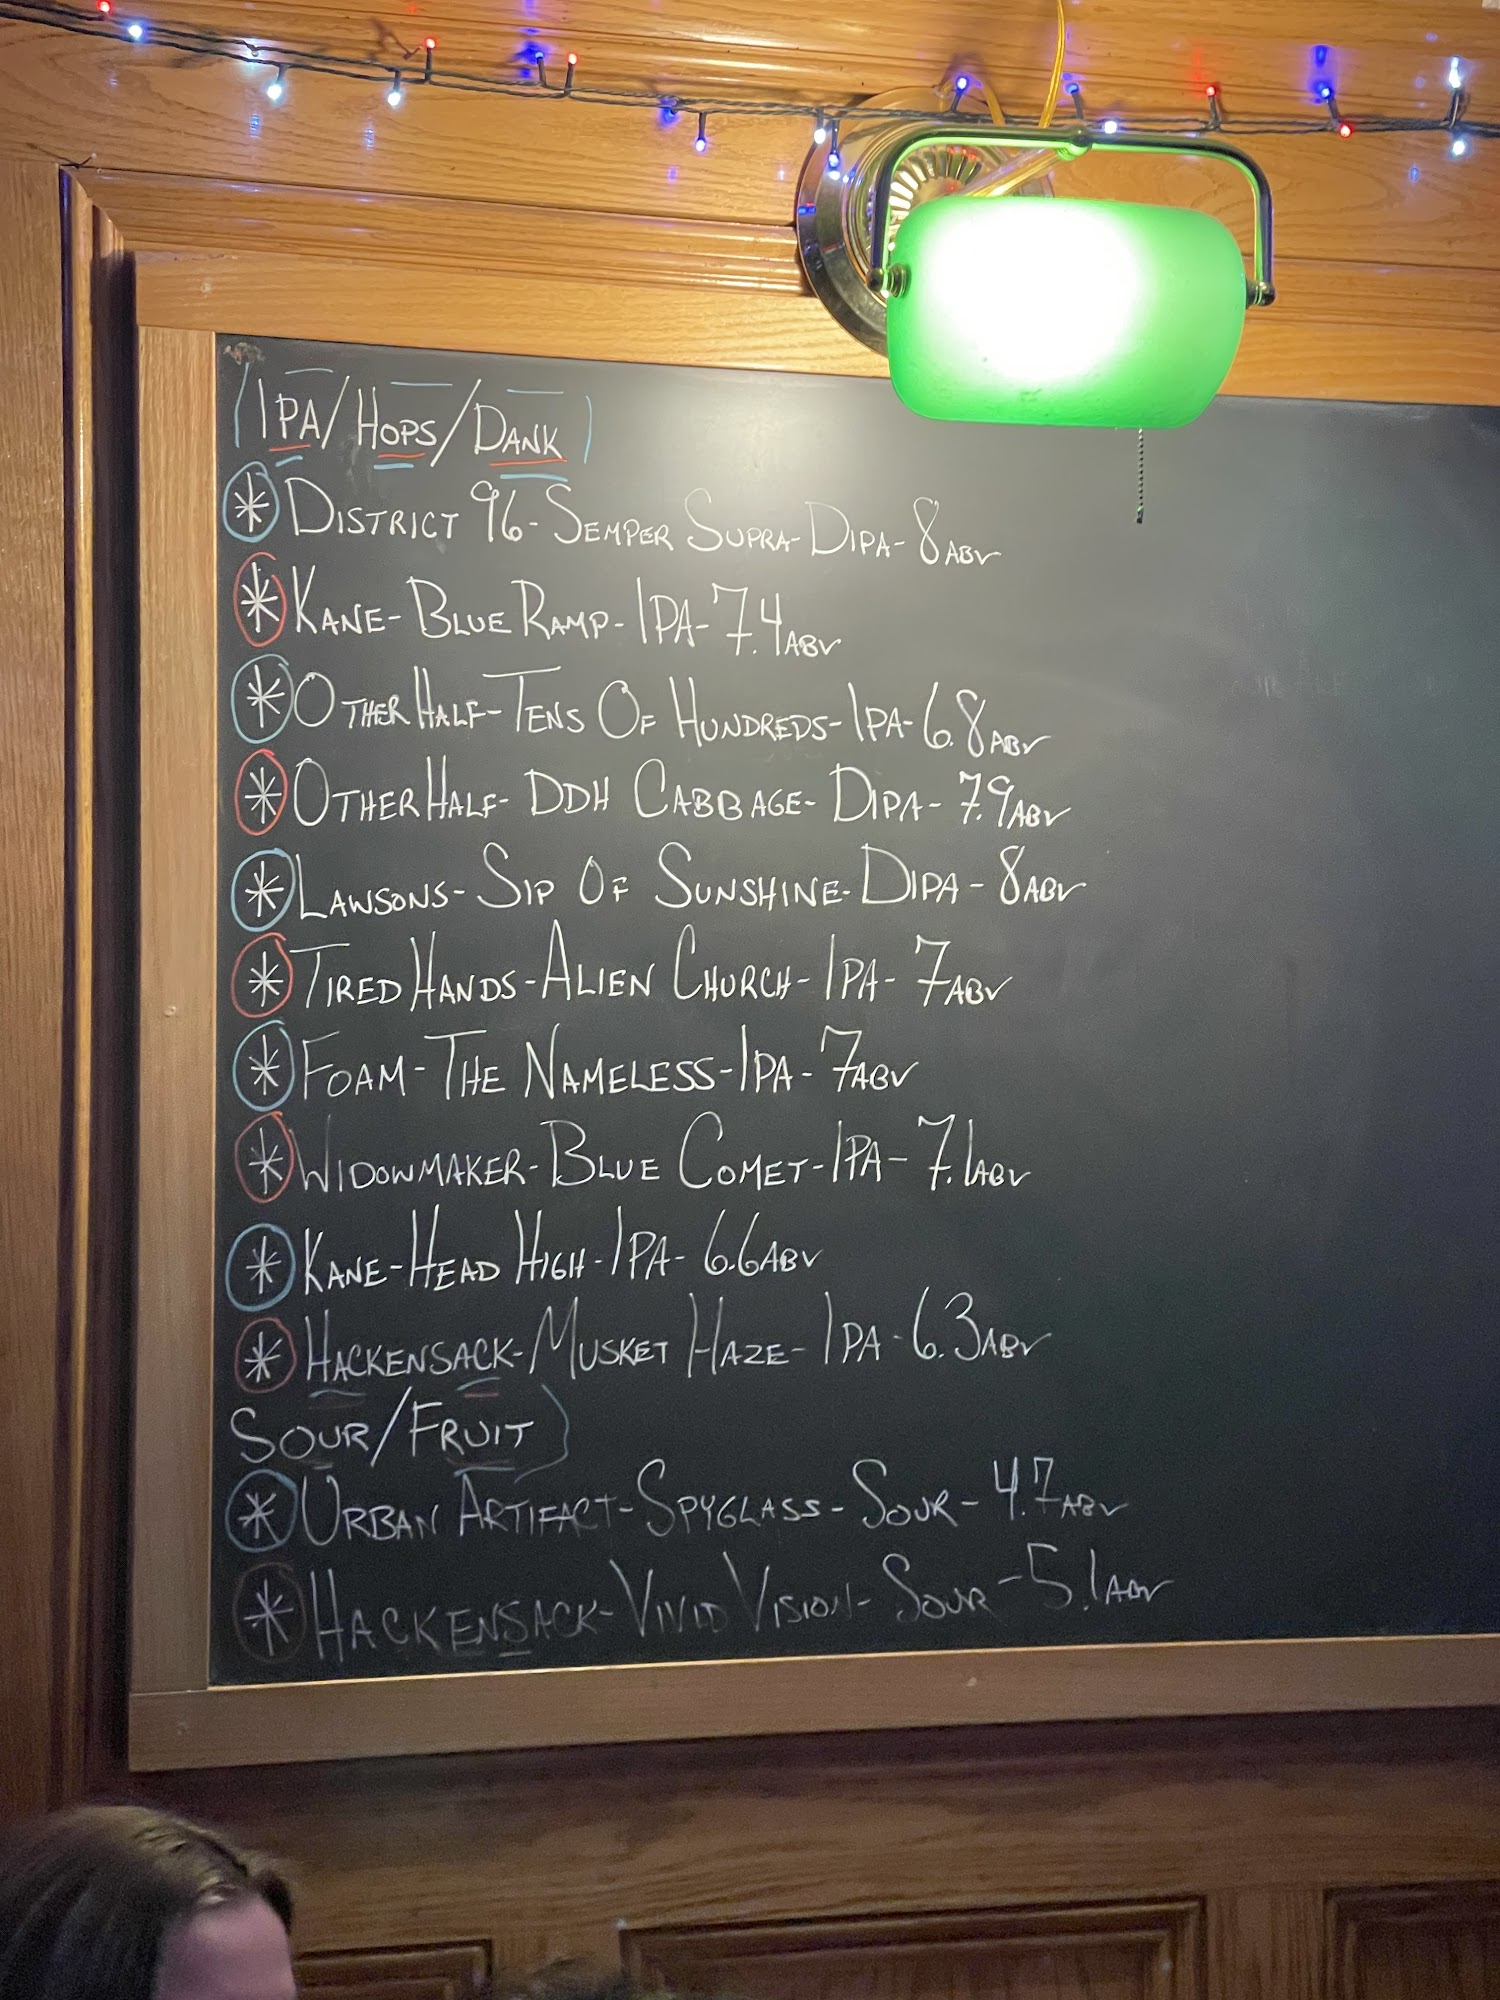 IPA/HOPS/DANK
* DISTRICT 96-SEMPER SUPRA-DIPA-8ABV
* KANE-BLUE RAMP-IPA-7.4ABV
* OTHER HALF-TENS OF HUNDREDS-IPA-6.8ABV
* OTHER HALF-DDH CABBAGE-DIPA-7.9ABV
* LAWSONS-SIP OF SUNSHINE-DIPA-8ABV
* TIRED HANDS-ALIEN CHURCH-IPA-7ABV
* FOAM-THE NAMELESS-IPA-7ABV
* WIDOWMAKER-BLUE COMET-IPA-7.1ABV
* KANE-HEAD HIGH-IPA-6.6ABV
* HACKENSACK-MUSKET HAZE-IPA-6.3ABV
SOUR/FRUIT
* URBAN ARTIFACT-SPYGLASS-SOUR-4.7ABV
* HACKENSACK-VIVID VISION-SOUR-5.1ABV